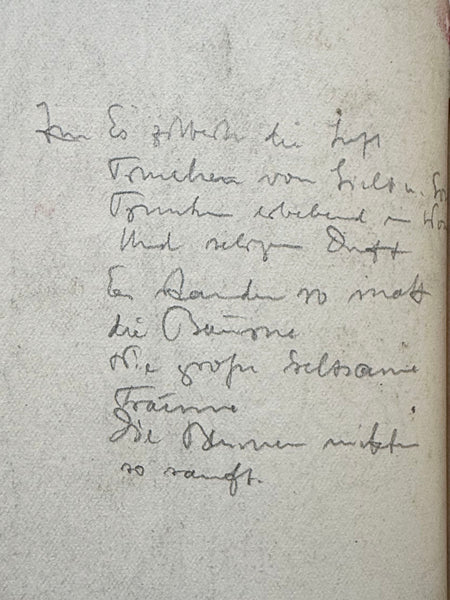 Es zittert die Luft
Trunken von Licht u.
Trunken erbebend in
Und seligem Duft
Es standen so matt
die Bäume
Wie große seltsame
Träume
Die Blumen nickten
so sanft.